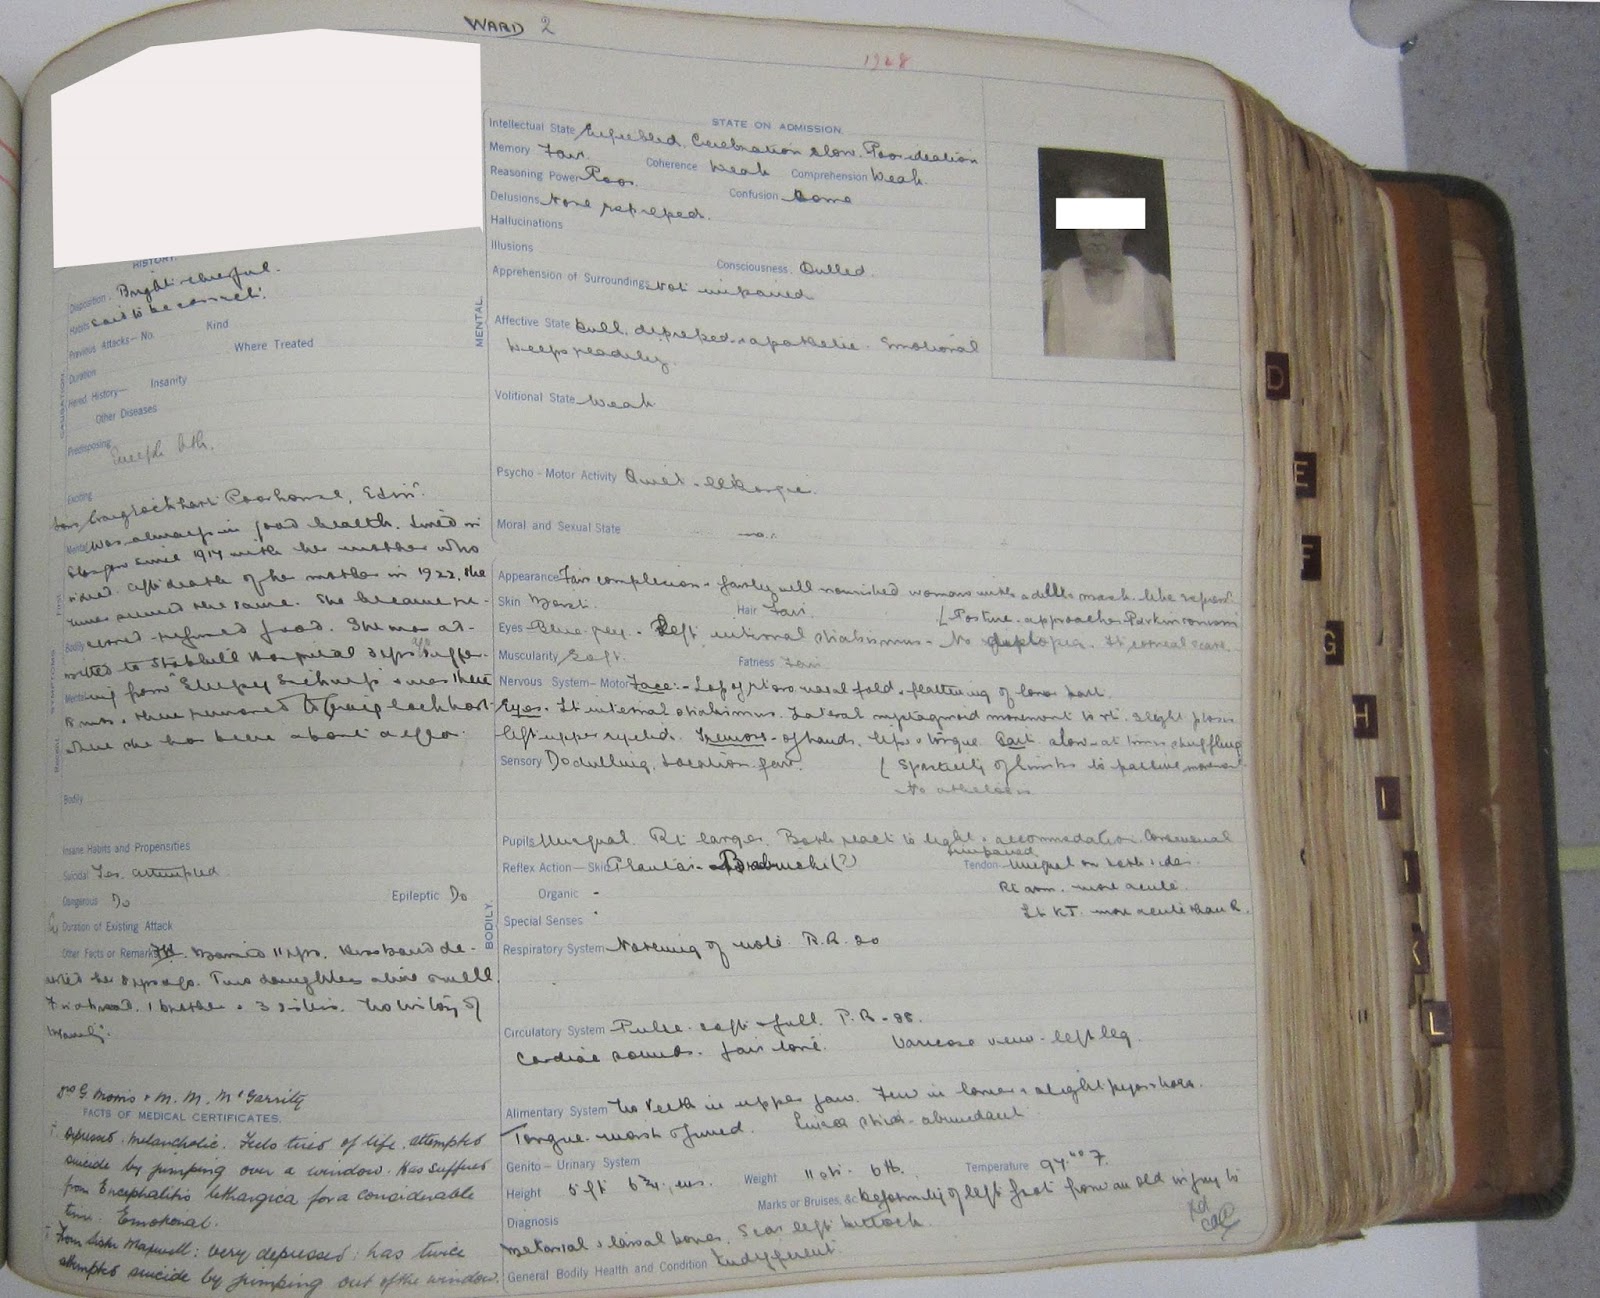 WARD 2
1928
HISTORY.
Disposition. Bright & cheerful.
Habits said to be correct.
Previous Attacks—No. Kind
Where Treated
Duration
Hered History— Insanity
Other Diseases
CAUSATION
Predisposing
Enceph leth.
Exciting
Craiglockhart Poorhouse, Edin.
Mental Was always in good health. Lived in
Glasgow since 1917 with her mother who
died. After death of her mother in 1922, she
the same. She became
Bodily refused food. She was ad-
mitted to Stobhill Hospital 3 yrs ago suffer-
Mental ing from "Sleepy Sickness" & was there
then removed to Craiglockhart
where she has been about a year.
First
SYMPTOMS
Bodily
Insane Habits and Propensities
Suicidal Yes. attempted
Dangerous Do Epileptic Do
Duration of Existing Attack
Other Facts or Remarks Married 11 yrs. Husband de-
serted her 8 yrs ago. Two daughters alive & well
1 brother & 3 sisters. No history of
Drs G Morris & M. M. McGarrity
FACTS OF MEDICAL CERTIFICATES.
Depressed. Melancholic. Feels tired of life. attempted
suicide by jumping over a window. Has suffered
from Encephalitis lethargica for a considerable
time. Emotional.
From Sister Maxwell: very depressed: has twice
attempted suicide by jumping out of the window.
STATE ON ADMISSION.
MENTAL.
Intellectual State Enfeebled. Cerebration slow. Poor ideation
Memory Fair. Coherence Weak Comprehension Weak.
Reasoning Power Poor. Confusion Some
Delusions None expressed.
Hallucinations
Illusions
Consciousness. Dulled.
Apprehension of Surroundings Not impaired
Affective State Dull, depressed & apathetic. Emotional
Weeps readily.
Volitional State Weak
Psycho-Motor Activity Quiet & lethargic.
Moral and Sexual State
BODILY.
Appearance Fair complexion & fairly well nourished woman with a dull & mask-like express.
Skin Moist. Hair Fair. Posture approaches Parkinsonism
Eyes Blue-grey. Left internal strabismus. No diplopia. Lt corneal scar.
Muscularity Soft. Fatness Fair.
Nervous System—Motor Face:- Loss of Rt naso-labial fold & flattening of lower part.
Eyes. Lt internal strabismus. Lateral nystagmoid movement to rt. Slight ptosis
left upper eyelid. Tremors of hands, lips & tongue. Gait slow at times shuffling
Sensory No dulling. Location fair. Spasticity of limbs to passive movement
No athetosis
Pupils Unequal. Rt larger. Both react to light & accommodation. Consensual
impaired
Reflex Action—Skin Plantar - Babinski (?) Tendon Unequal on both sides.
Rt arm. more acute.
Organic -
Lt KJ. more acute than R.
Special Senses
Respiratory System Nothing of note. R.R. 20
Circulatory System Pulse soft & full. P.R - 88.
Cardiac sounds. fair tone. Varicose veins - left leg.
Alimentary System No teeth in upper jaw. Few in lower & slight pyorrhoea.
Tongue moist & furred. abundant
Genito-Urinary System
Height 5 ft 6¾ ins. Weight 11 st. 6 lb. Temperature 97 F.
Marks or Bruises, &c Deformity of left foot from an old injury to
Diagnosis
metatarsal & tarsal bones. Scar left buttock.
General Bodily Health and Condition Indifferent
D
E
F
G
H
I
J
K
L